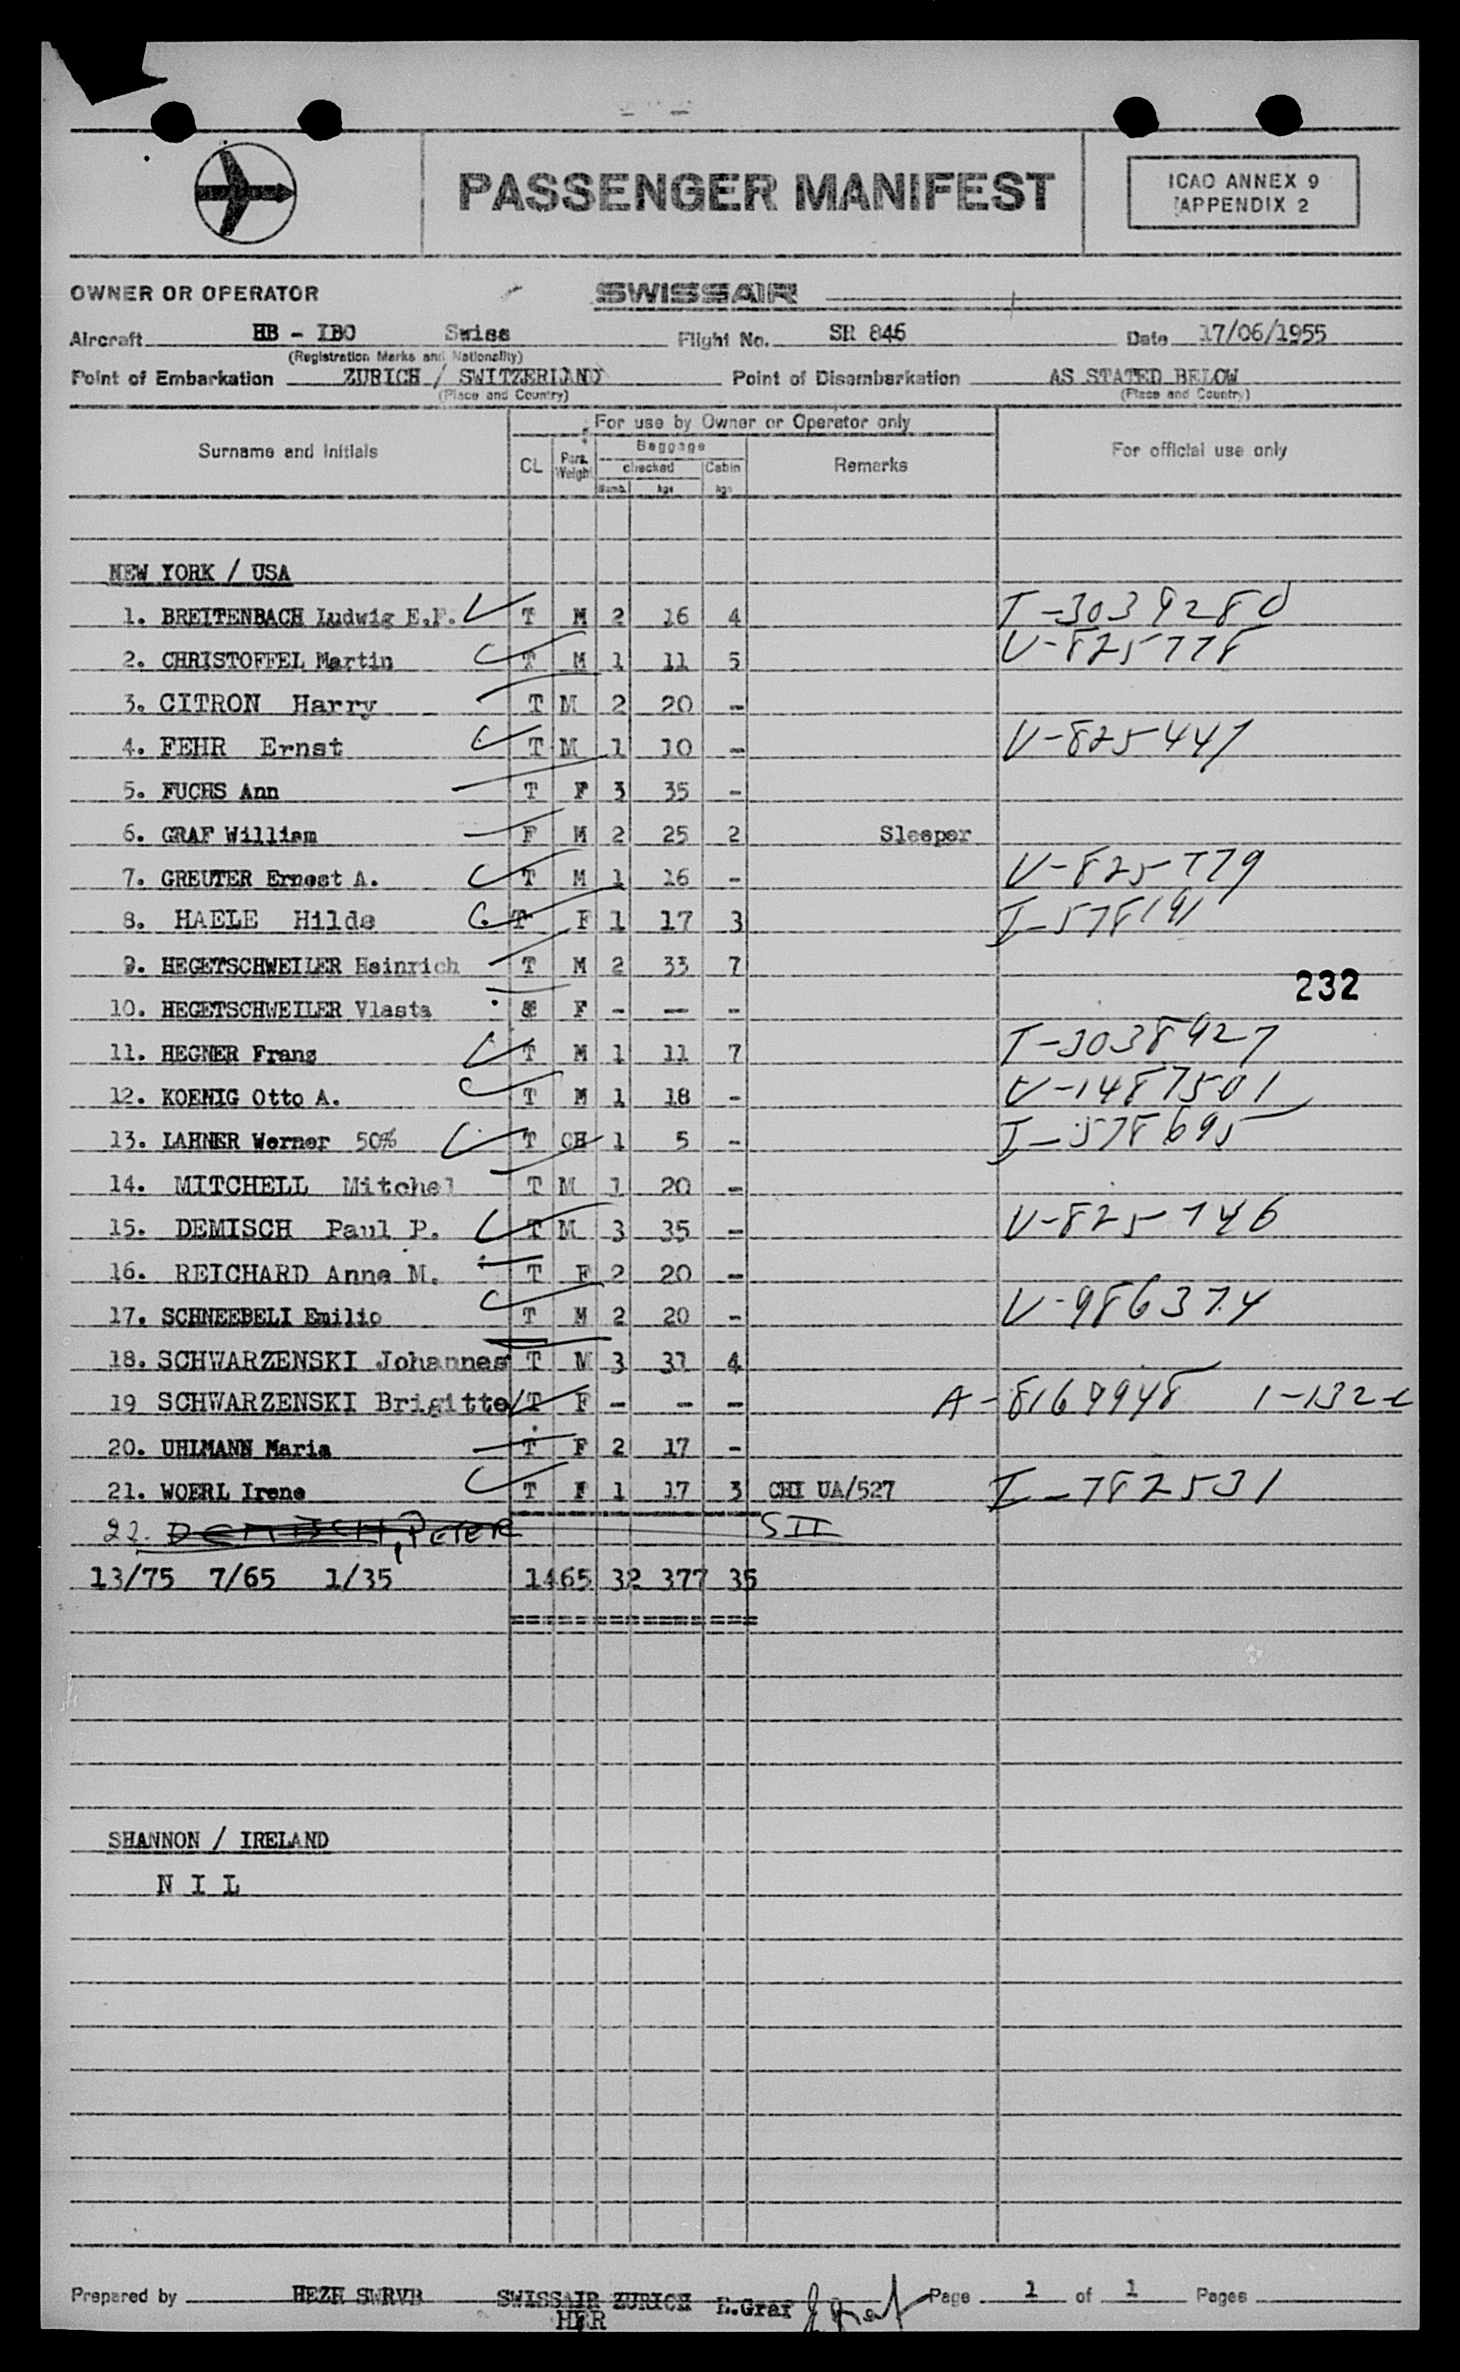 PASSENGER MANIFEST
ICAO ANNEX 9
APPENDIX 2
OWNER OR OPERATOR SWISSAIR
Aircraft HB - IBO Swiss Flight No. SR 846 Date 17/06/1955
(Registration Marks and Nationality)
Point of Embarkation ZURICH / SWITZERLAND Point of Disembarkation AS STATED BELOW
(Place and Country) (Place and Country)
Surname and Initials CL Pers. Weight For use by Owner or Operator only For official use only
Baggage Remarks
checked Cabin
Numb. kgs kgs
NEW YORK / USA
1. BREITENBACH Ludwig E.F. T M 2 16 4 I-3039280
2. CHRISTOFFEL Martin T M 1 11 5 V-825778
3. CITRON Harry T M 2 20 -
4. FEHR Ernst T M 1 10 - V-825447
5. FUCHS Ann T F 3 35 -
6. GRAF William F M 2 25 2 Sleeper
7. GREUTER Ernest A. T M 1 16 - V-825779
8. HAELE Hilde T F 1 17 3 I-578191
9. HEGETSCHWEILER Heinrich T M 2 33 7
232
10. HEGETSCHWEILER Vlasta F - -- -
11. HEGNER Franz T M 1 11 7 I-3038927
12. KOENIG Otto A. T M 1 18 - V-1487501
13. LAHNER Werner 50% T CH 1 5 - I-578695
14. MITCHELL Mitchel T M 1 20 -
15. DEMISCH Paul P. T M 3 35 - V-825746
16. REICHARD Anna M. T F 2 20 -
17. SCHNEEBELI Emilio T M 2 20 - V-986374
18. SCHWARZENSKI Johannes T M 3 31 4
19 SCHWARZENSKI Brigitte T F - - - A-8169948 1-132
20. UHLMANN Maria T F 2 17 -
21. WOERL Irene T F 1 17 3 CHI UA/527 I-782531
22. DEMISCH, PETER SII
13/75 7/65 1/35 1465 32 377 35
===============
SHANNON / IRELAND
N I L
Prepared by HEZH SWRVB SWISSAIR ZURICH E.Graf Graf Page 1 of 1 Pages
HER